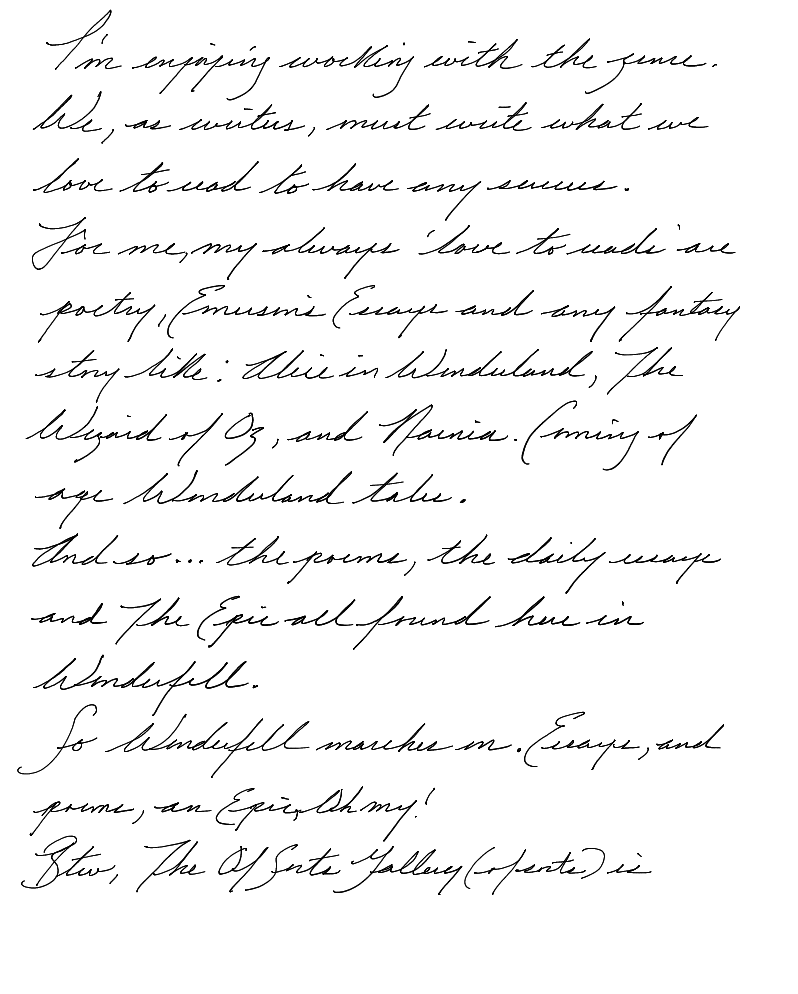 I'm enjoying working with the genre.
We, as writers, must write what we
love to read to have any success.
For me, my always 'love to reads' are
poetry, Emerson's Essays and any fantasy
story like: Alice in Wonderland, The
Wizard of Oz, and Narnia. Coming of
age Wonderland tales.
And so... the poems, the daily essays
and The Epic all found here in
Wonderfell.
So Wonderfell marches on. Essays, and
poems, an Epic, Oh my!
Btw, The Of Sorts Gallery (of sorts) is